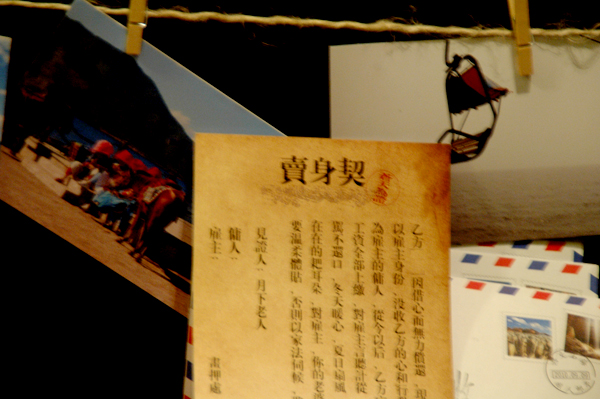 賣身契
乙方 因借心而無力償還，現
以雇主身份，沒收乙方的心和行
為雇主的傭人，從今以后，乙方
工資全部上繳，對雇主言聽計從
罵不還口，冬天暖心，夏日扇風
在在的耙耳朵，對雇主，你的老
要溫柔體貼，否則以家法伺候，
見證人：月下老人
傭人：
雇主： 畫押處